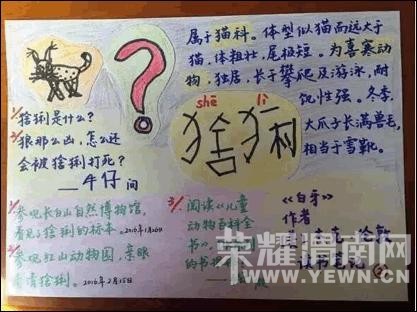 属于猫科。体型似猫而远大于
猫，体粗壮，尾极短。为喜寒动
物，独居，长于攀爬及游泳，耐
饥性强。冬季，
大爪子长满兽毛，
相当于雪靴。
?
shē lì
猞猁
1/猞猁是什么？
2/狼那么凶，怎么还
会被猞猁打死？
——牛仔 问
1/参观长白山自然博物馆，
看见了猞猁的标本。2016年1月26日
2/参观红山动物园，亲眼
看清猞猁。2016年2月15日
3/阅读《儿童
动物百科全
书》，
的书
《白牙》
作者
杰克 伦敦
荣耀渭南网
WWW.YEWN.CN